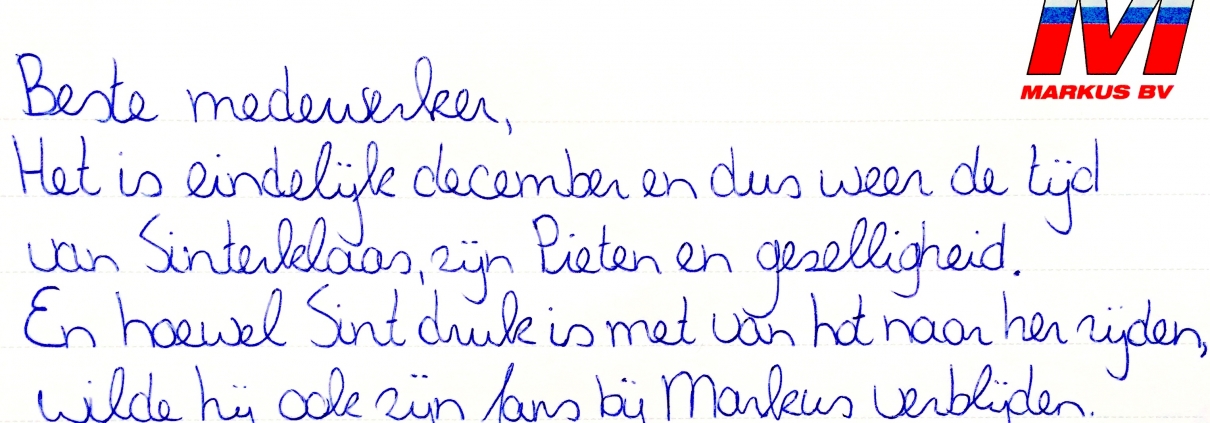 MARKUS BV
Beste medewerker,
Het is eindelijk december en dus weer de tijd
van Sinterklaas, zijn Pieten en gezelligheid.
En hoewel Sint druk is met van hot naar her rijden,
wilde hij ook zijn fans bij Markus verblijden.